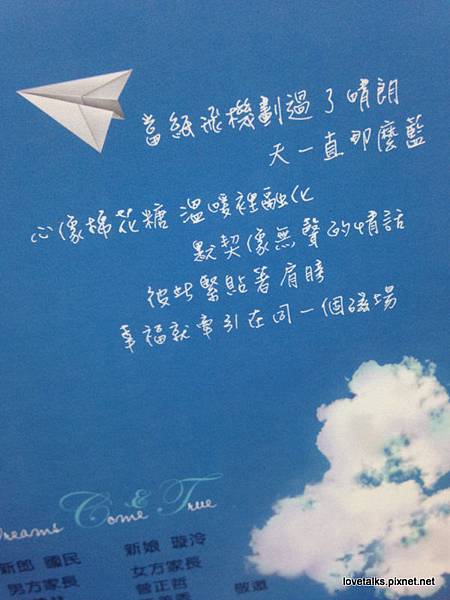 當紙飛機劃過了晴朗
天一直那麼藍
心像棉花糖 溫暖裡融化
默契像無聲的情話
彼此緊貼著肩膀
幸福就牽引在同一個磁場
Dreams Come & True
新郎 國民 新娘 璇泠
男方家長 女方家長
曾正哲 敬邀
lovetalks.pixnet.net